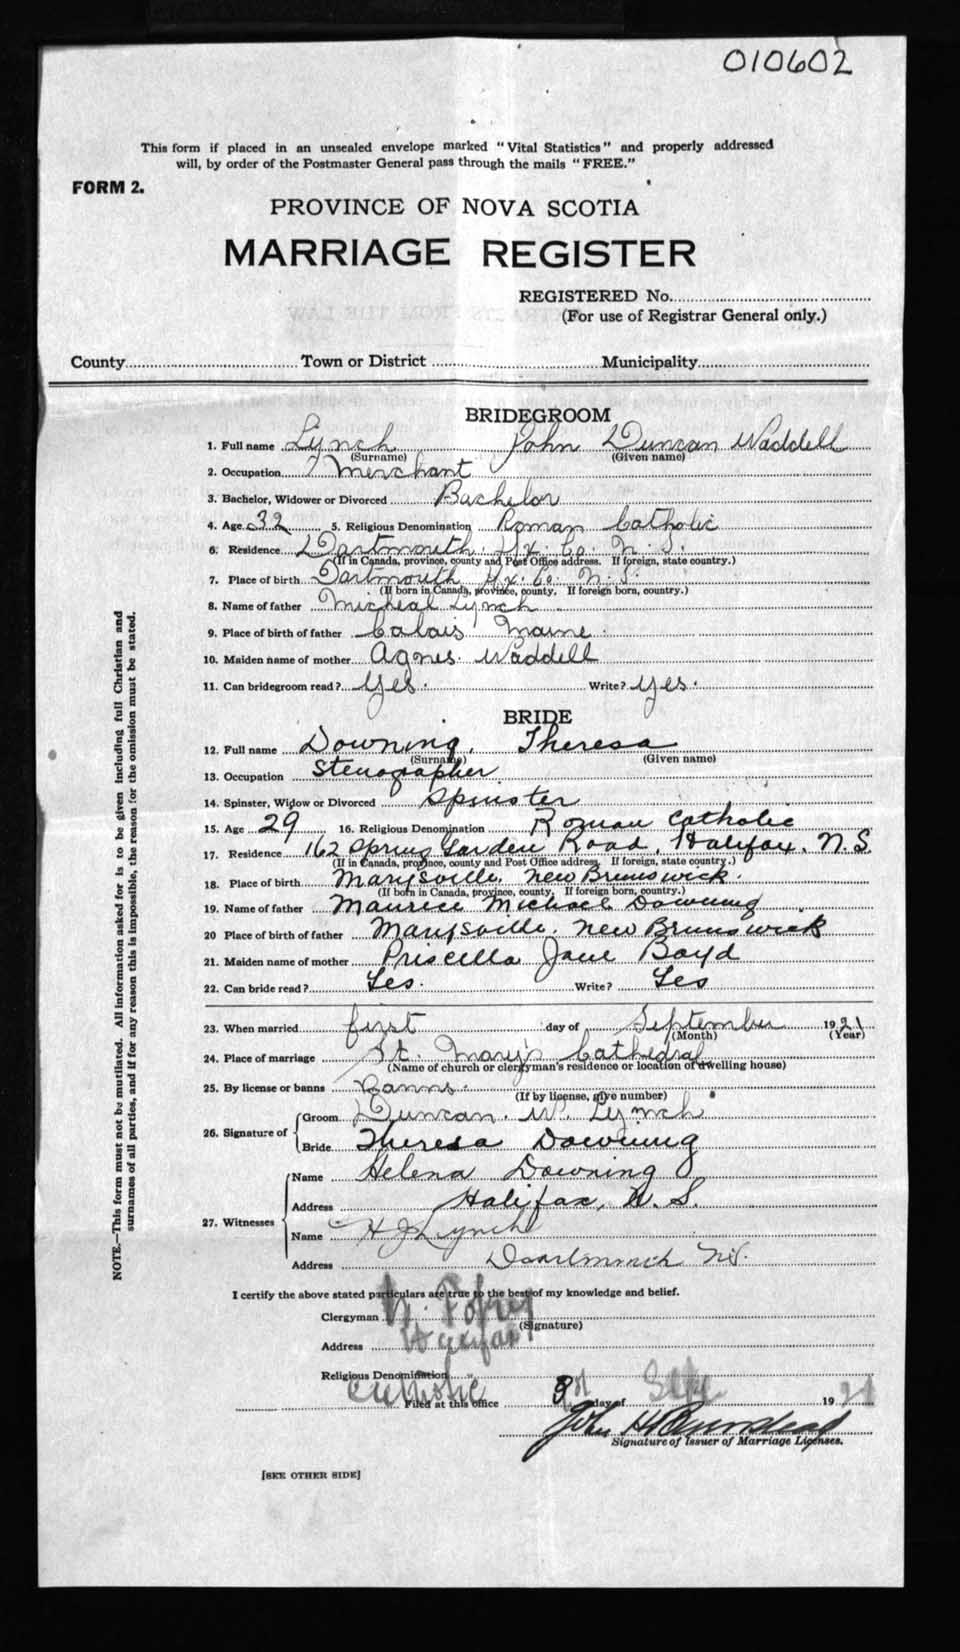 010602
This form if placed in an unsealed envelope marked "Vital Statistics" and properly addressed
will, by order of the Postmaster General pass through the mails "FREE."
FORM 2.
PROVINCE OF NOVA SCOTIA
MARRIAGE REGISTER
REGISTERED No.
(For use of Registrar General only.)
County Town or District Municipality
BRIDEGROOM
1. Full name Lynch John Duncan Waddell
(Surname) (Given name)
2. Occupation Merchant
3. Bachelor, Widower or Divorced Bachelor
4. Age 32 5. Religious Denomination Roman Catholic
6. Residence Dartmouth. Hx. Co. N. S.
(If in Canada, province, county and Post Office address. If foreign, state country.)
7. Place of birth Dartmouth Hx. Co. N. S.
(If born in Canada, province, county. If foreign born, country.)
8. Name of father Micheal Lynch
9. Place of birth of father Calais Maine
10. Maiden name of mother Agnes Waddell
11. Can bridegroom read? Yes. Write? Yes.
BRIDE
12. Full name Downing, Theresa
(Surname) (Given name)
13. Occupation Stenographer
14. Spinster, Widow or Divorced Spinster
15. Age 29 16. Religious Denomination Roman Catholic
17. Residence 162 Spring Garden Road, Halifax, N.S.
(If in Canada, province, county and Post Office address. If foreign, state country.)
18. Place of birth Marysville, New Brunswick.
(If born in Canada, province, county. If foreign born, country.)
19. Name of father Maurice Michael Downing
20 Place of birth of father Marysville, New Brunswick
21. Maiden name of mother Priscilla Jane Boyd
22. Can bride read? Yes. Write? Yes
23. When married first day of September 1921
(Month) (Year)
24. Place of marriage St. Mary's Cathedral
(Name of church or clergyman's residence or location of dwelling house)
25. By license or banns Banns.
(If by license, give number)
26. Signature of Groom Duncan. W. Lynch
Bride Theresa Downing
27. Witnesses Name Helena Downing
Address Halifax, N. S.
Name H J Lynch
Address Dartmouth NS.
I certify the above stated particulars are true to the best of my knowledge and belief.
Clergyman
(Signature)
Address Halifax
Religious Denomination Catholic
Filed at this office day of Sept 1921
John H
Signature of Issuer of Marriage Licenses.
[SEE OTHER SIDE]
NOTE.—This form must not be mutilated. All information asked for is to be given including full Christian and
surnames of all parties, and if for any reason this is impossible, the reason for the omission must be stated.